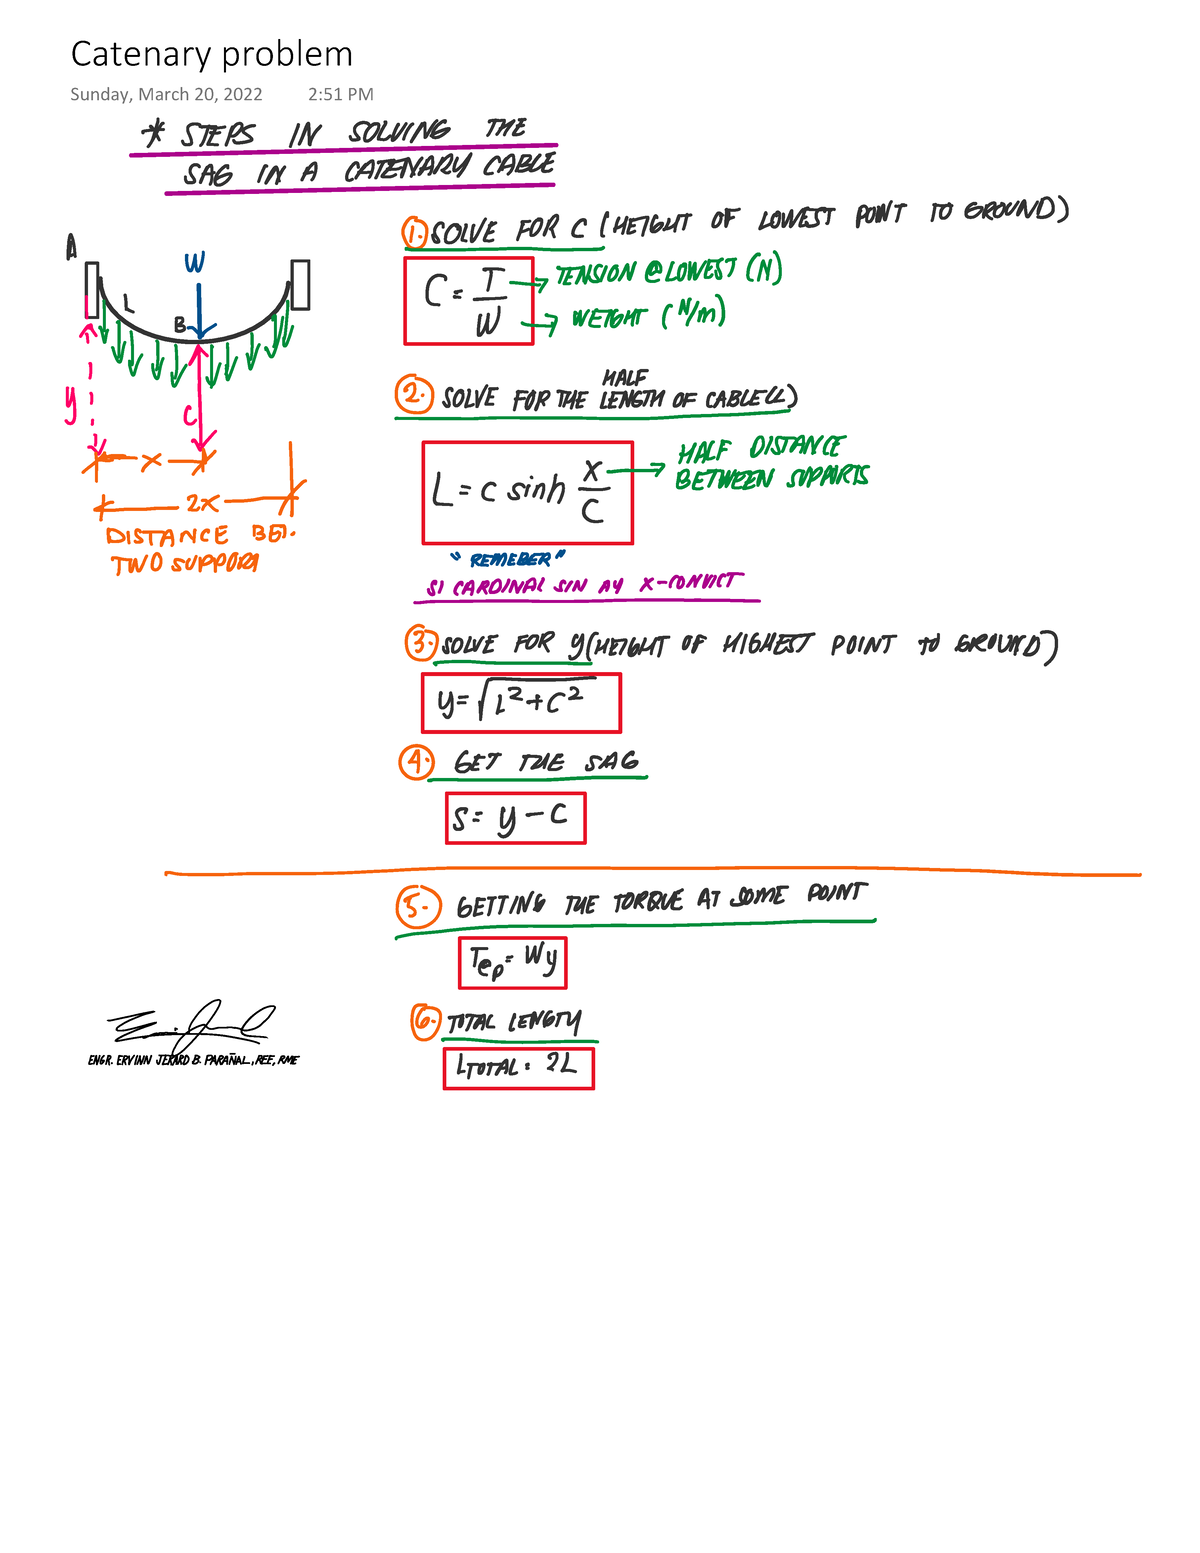 Catenary problem
Sunday, March 20, 2022 2:51 PM
* STEPS IN SOLVING THE
SAG IN A CATENARY CABLE
A
W
L
B
y
C
x
2x
DISTANCE BET.
TWO SUPPORT
1. SOLVE FOR C (HEIGHT OF LOWEST POINT TO GROUND)
C = T/W
TENSION @ LOWEST (N)
WEIGHT (N/m)
2. SOLVE FOR THE HALF LENGTH OF CABLE(L)
L = C sinh x/C
HALF DISTANCE
BETWEEN SUPPORTS
"REMEBER"
SI CARDINAL SIN AY X-CONVICT
3. SOLVE FOR y (HEIGHT OF HIGHEST POINT TO GROUND)
y = √L²+C²
4. GET THE SAG
S = y - C
5. GETTING THE TORQUE AT SOME POINT
T@p = Wy
6. TOTAL LENGTH
LTOTAL = 2L
ENGR. ERVINN JERARD B. PARAÑAL, REE, RME